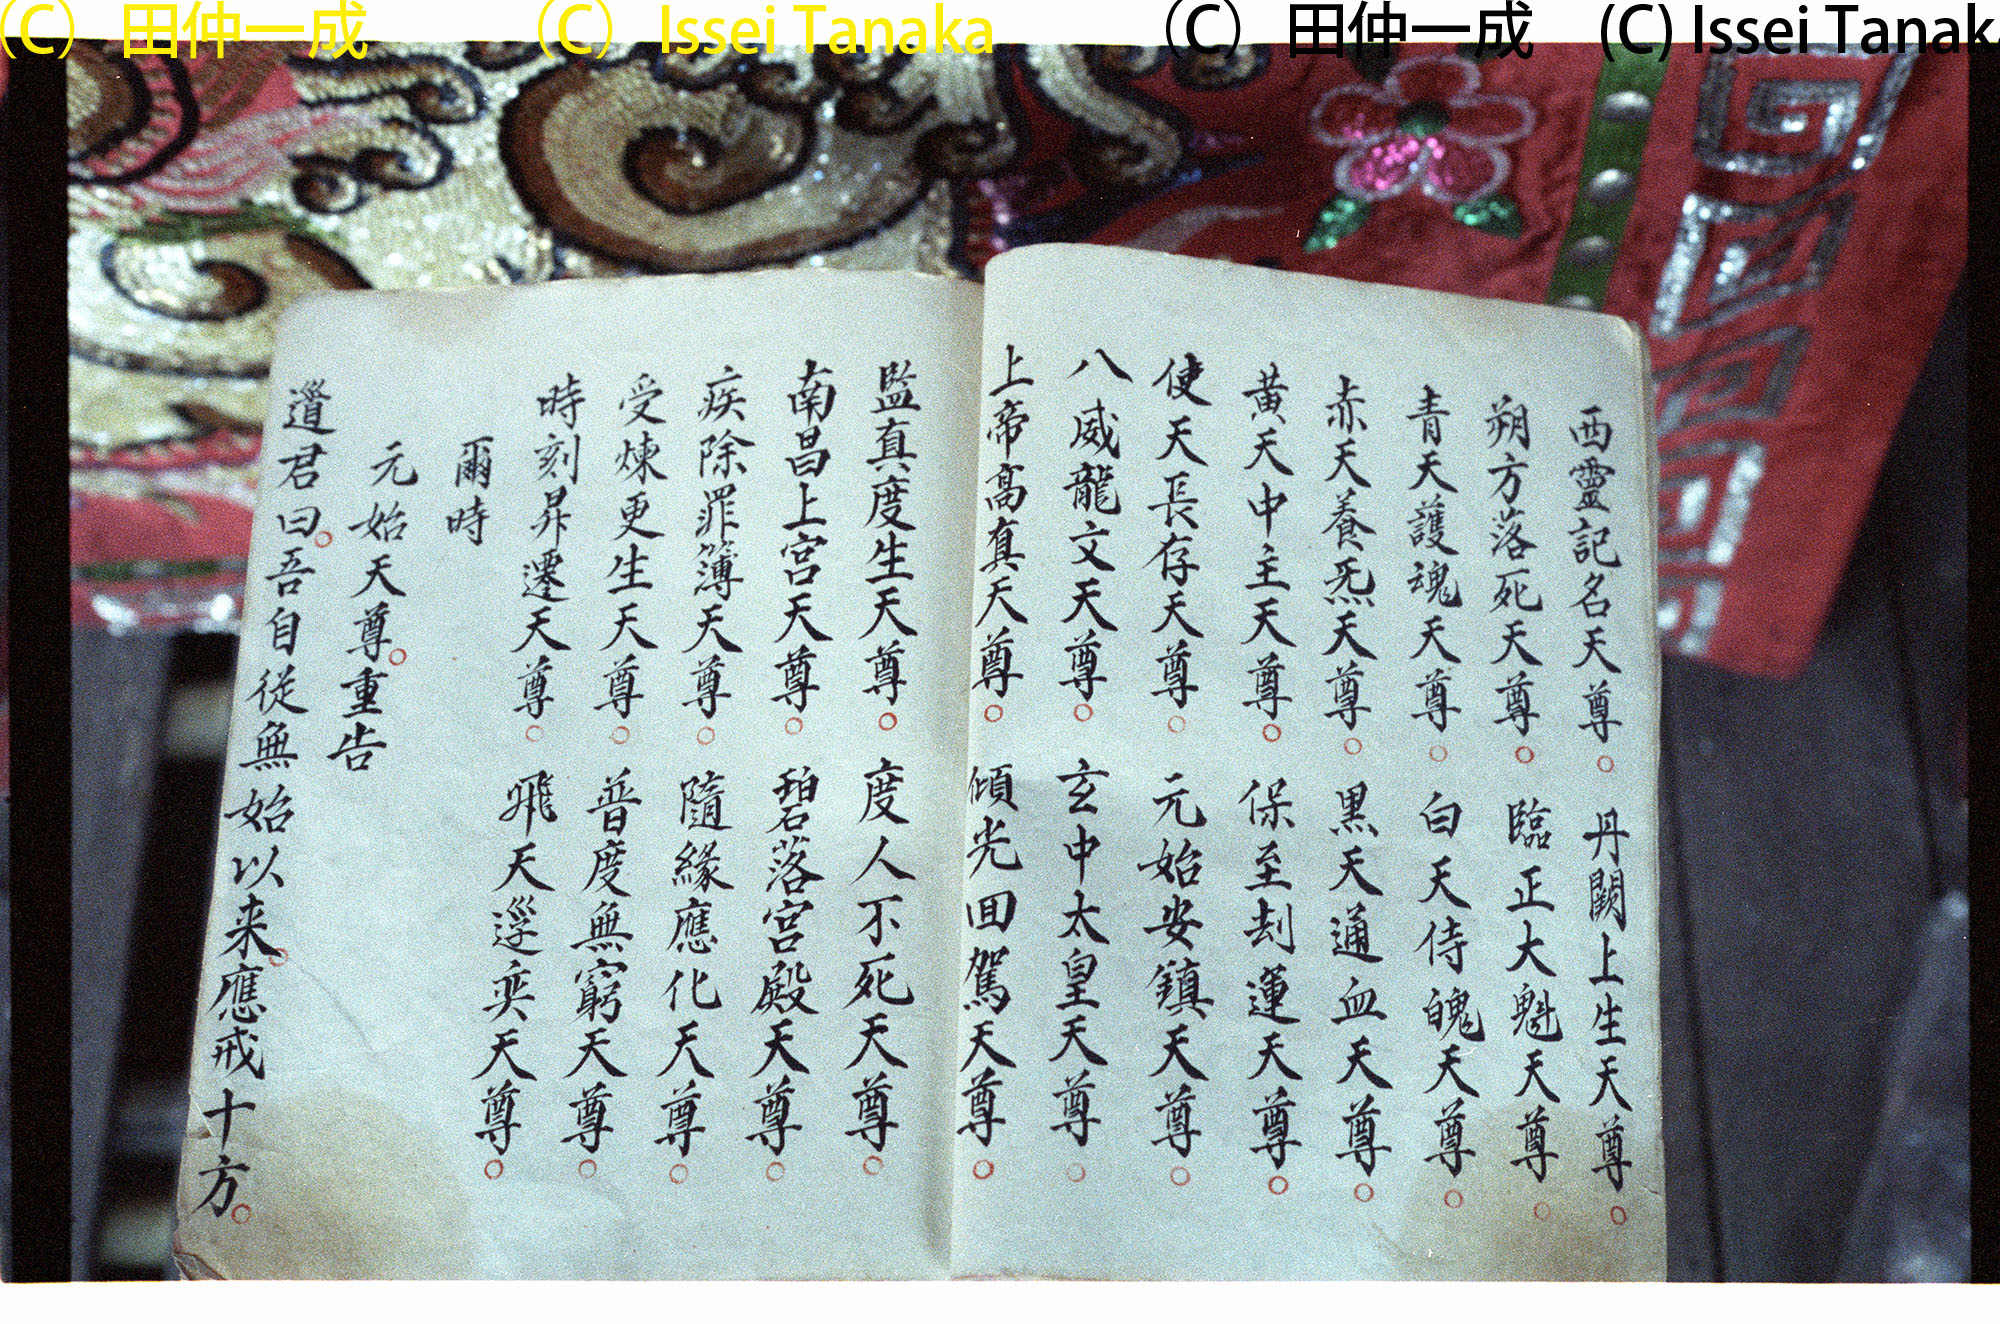 (C) 田仲一成 (C) Issei Tanaka (C) 田仲一成 (C) Issei Tanaka
西靈記名天尊○ 丹闕上生天尊○
朔方落死天尊○ 臨正大魁天尊○
青天護魂天尊○ 白天侍魄天尊○
赤天養炁天尊○ 黑天通血天尊○
黃天中主天尊○ 保至刦運天尊○
使天長存天尊○ 元始安鎮天尊○
八威龍文天尊○ 玄中太皇天尊○
上帝高真天尊○ 傾光回駕天尊○
監真度生天尊○ 度人不死天尊○
南昌上宮天尊○ 碧落宮殿天尊○
疾除罪簿天尊○ 隨緣應化天尊○
受煉更生天尊○ 普度無窮天尊○
時刻昇遷天尊○ 飛天逕奕天尊○
爾時
元始天尊○重告
道君曰○吾自從無始以来○應戒十方○